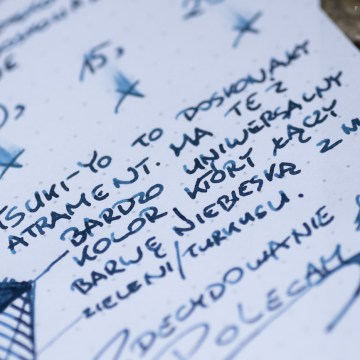 15s
TSUKI-YO TO DOSKONAŁY
ATRAMENT. MA TEŻ
BARDZO UNIWERSALNY
KOLOR KTÓRY ŁĄCZY
BARWĘ NIEBIESKĄ Z
ZIELENI/TURKUSU.
ZDECYDOWANIE
POLECAM